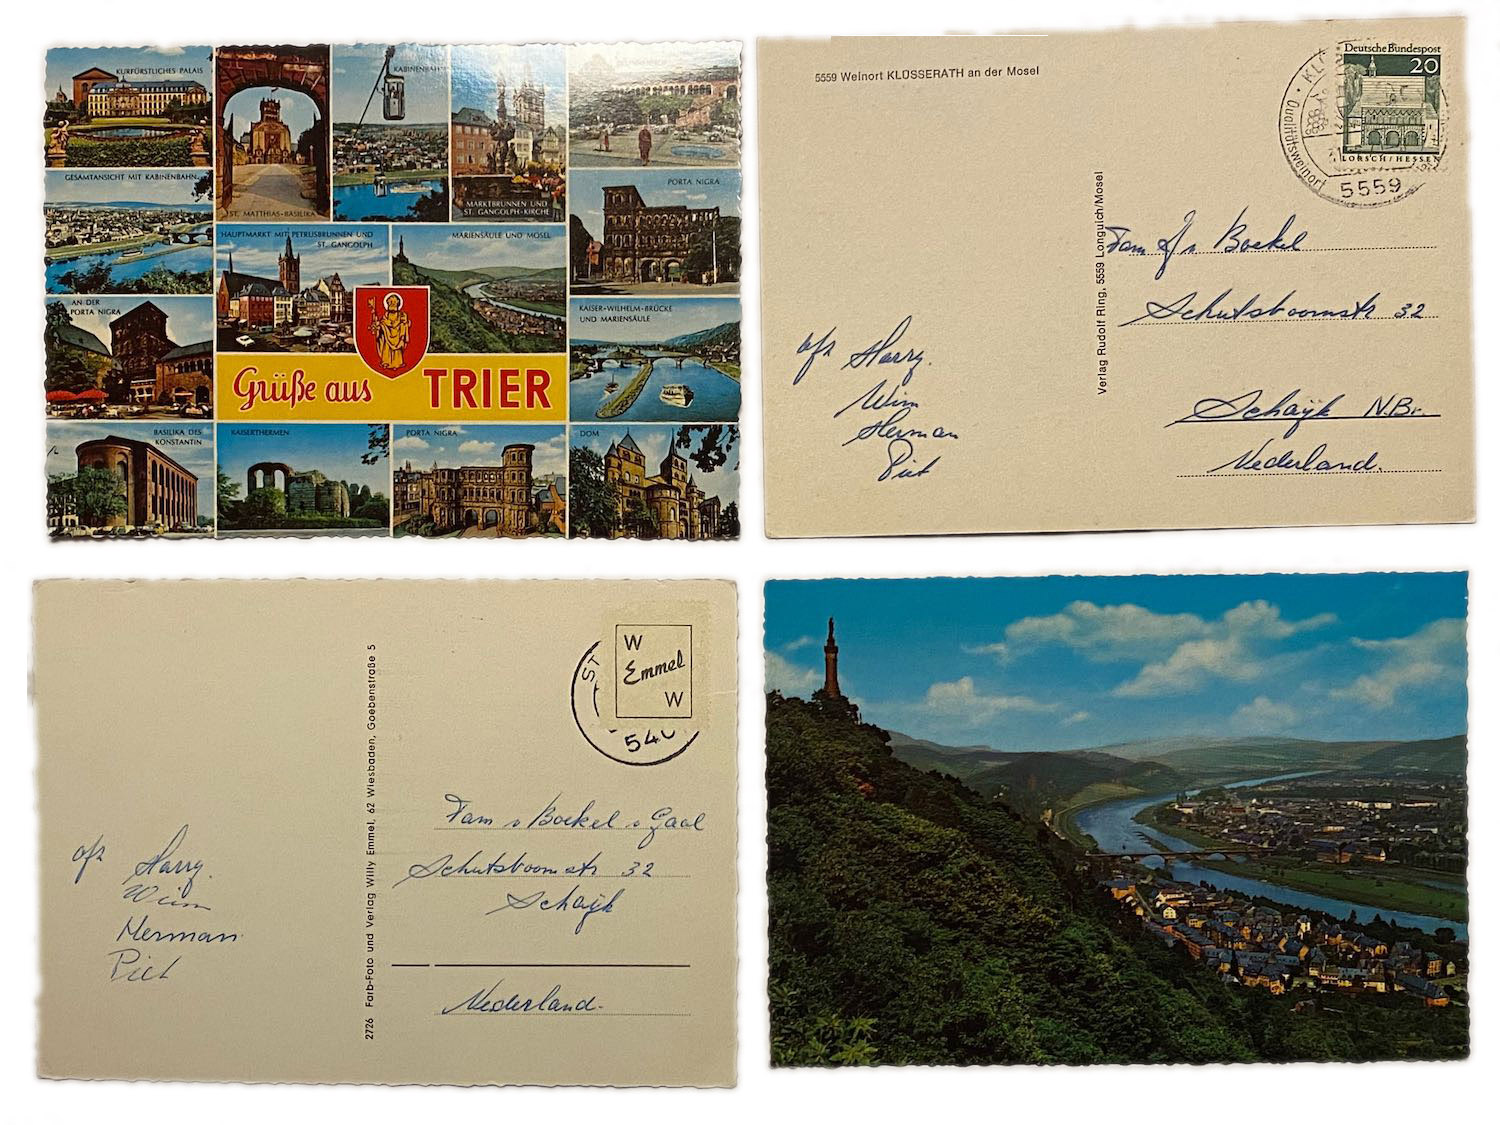 KURFÜRSTLICHES PALAIS
ST. MATTHIAS-BASILIKA
KABINENBAHN
MARKTBRUNNEN UND
ST. GANGOLPH-KIRCHE
GESAMTANSICHT MIT KABINENBAHN
PORTA NIGRA
HAUPTMARKT MIT PETRUSBRUNNEN UND
ST. GANGOLPH
MARIENSÄULE UND MOSEL
AN DER
PORTA NIGRA
KAISER-WILHELM-BRÜCKE
UND MARIENSÄULE
Grüße aus TRIER
BASILIKA DES
KONSTANTIN
KAISERTHERMEN
PORTA NIGRA
DOM
5559 Weinort KLÜSSERATH an der Mosel
Deutsche Bundespost
20
LORSCH/HESSEN
Qualitätsweinort
5559
Verlag Rudolf Ring, 5559 Longuich/Mosel
Fam J v Boekel
Schutsboomstr 32
Schaijk N.Br.
Nederland.
afz Harry.
Wim
Herman
Piet
W
Emmel
W
540
2726 Farb-Foto und Verlag Willy Emmel, 62 Wiesbaden, Goebenstraße 5
Fam v Boekel v Gaal
Schutsboomstr 32
Schaijk
Nederland.
afz Harry.
Wim
Herman
Piet